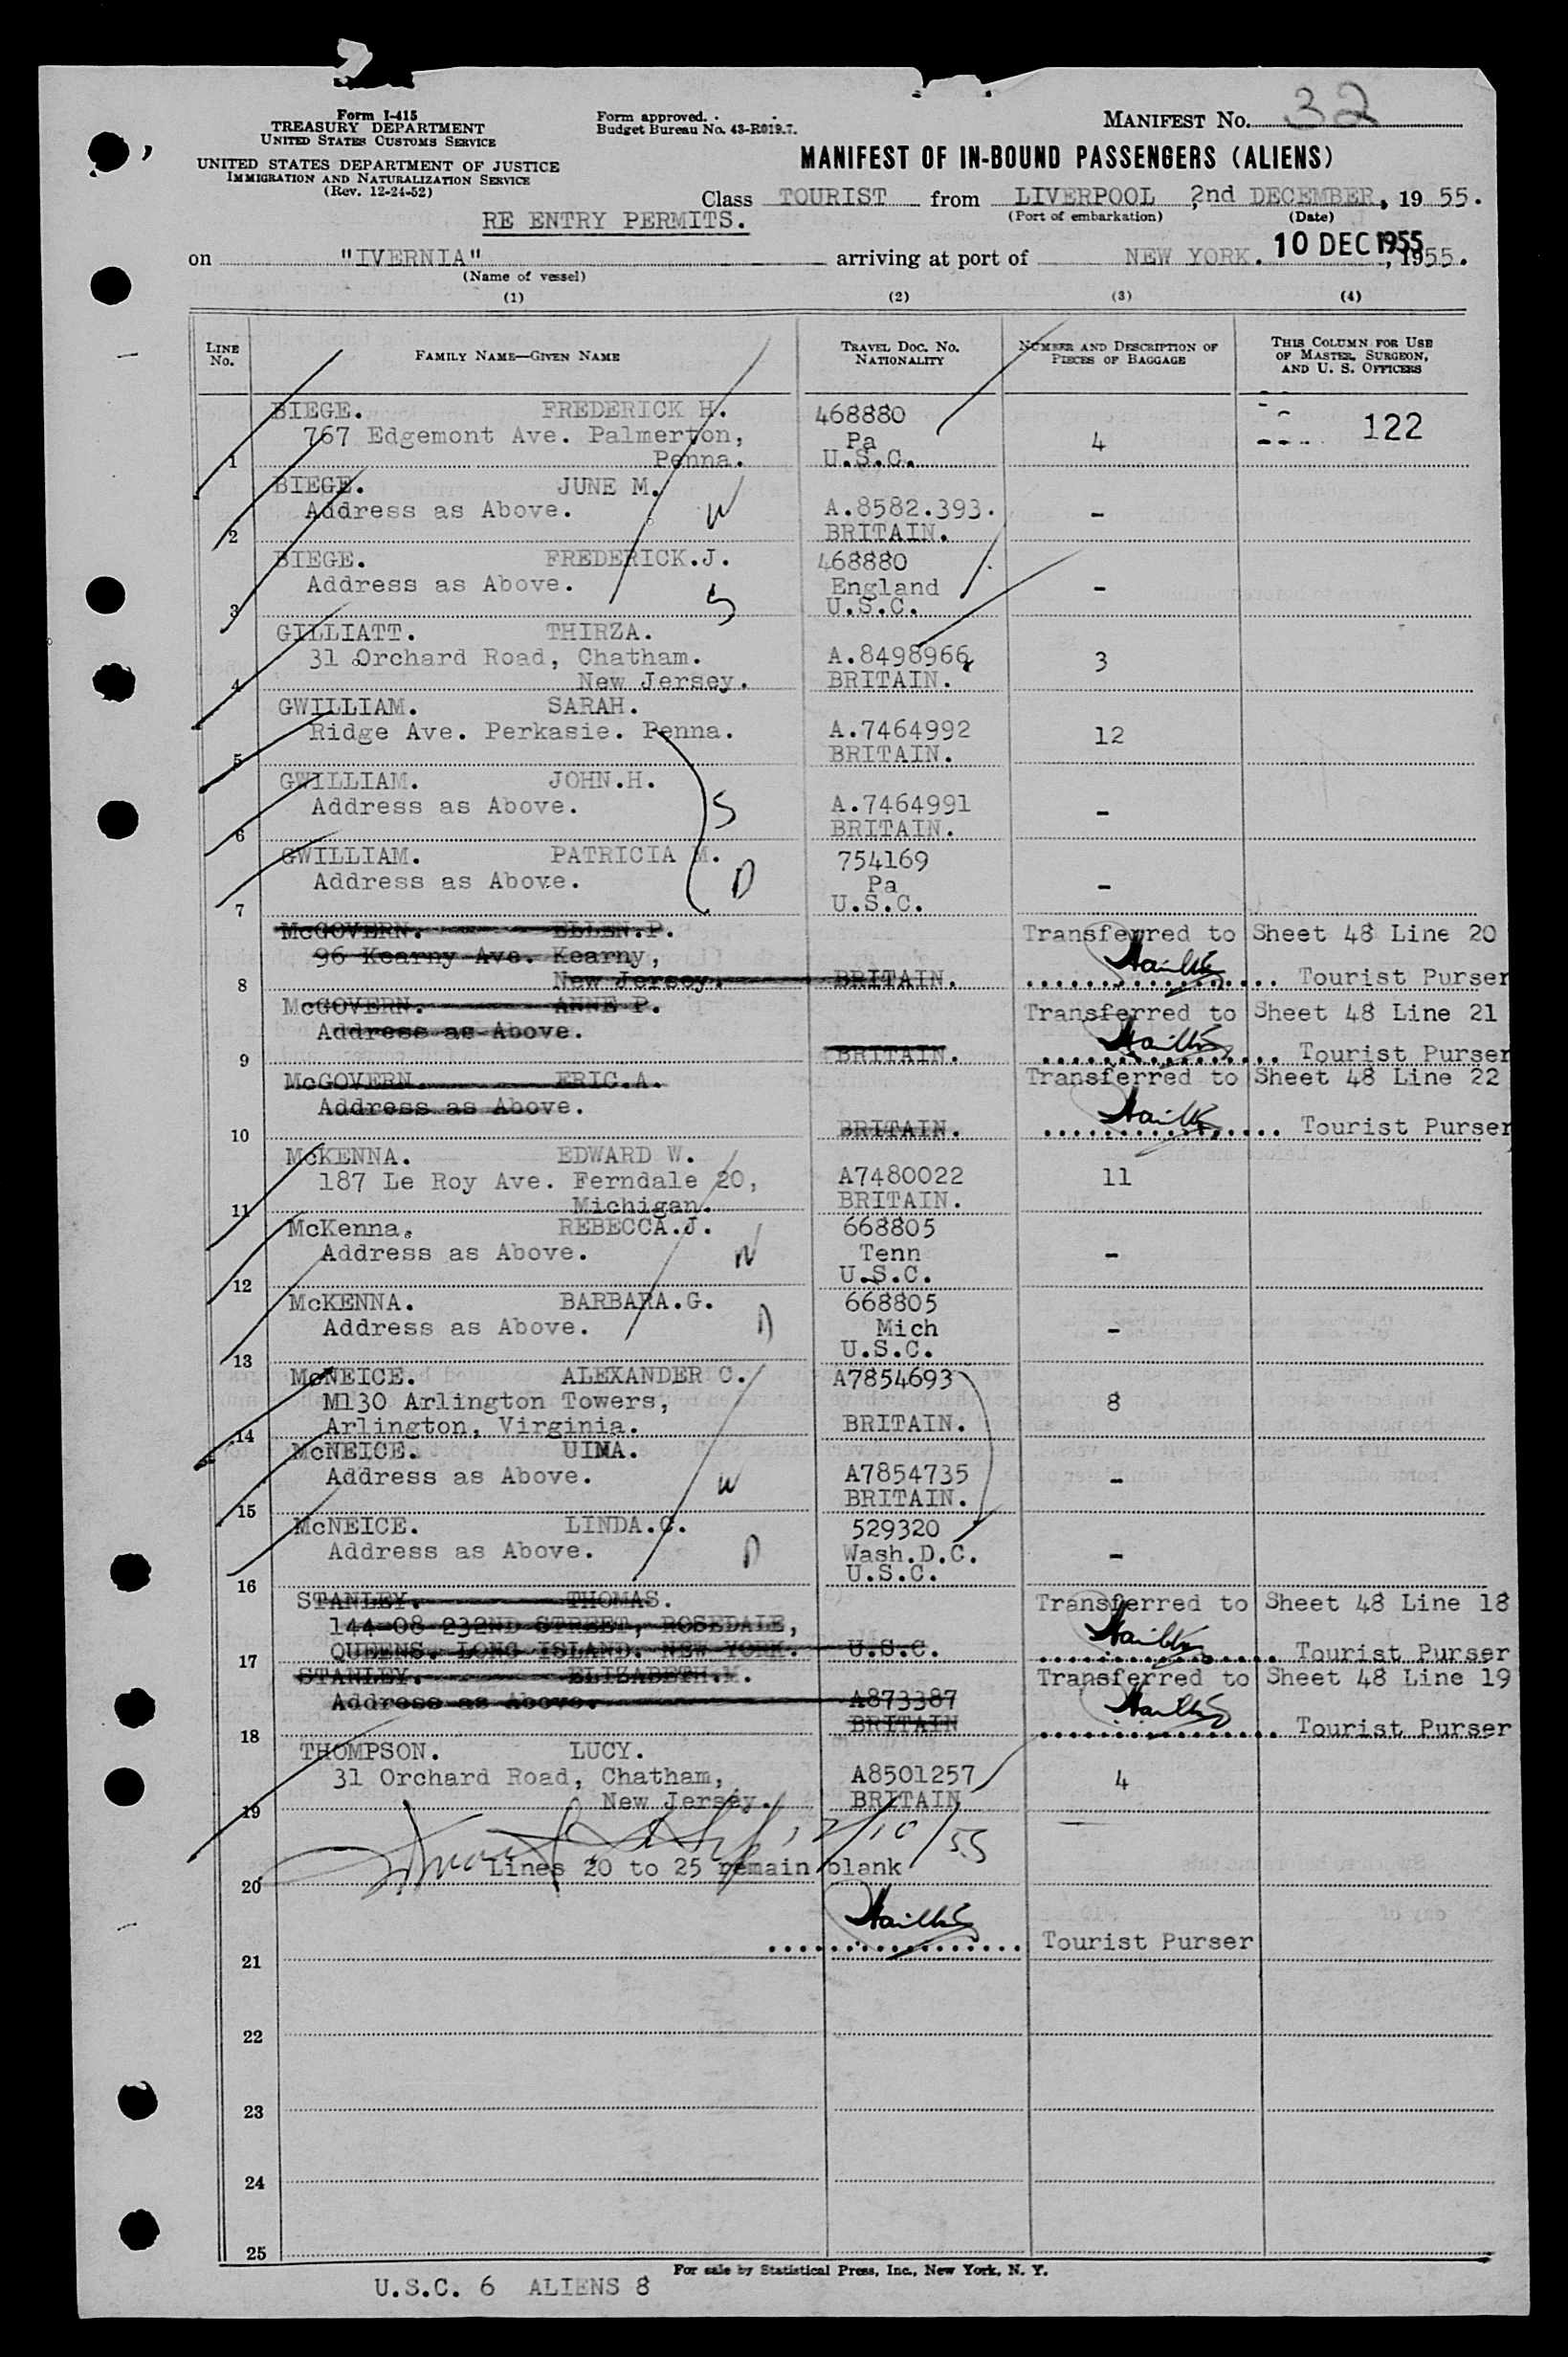 Form I-415
TREASURY DEPARTMENT
UNITED STATES CUSTOMS SERVICE
UNITED STATES DEPARTMENT OF JUSTICE
IMMIGRATION AND NATURALIZATION SERVICE
(Rev. 12-24-52)
Form approved.
Budget Bureau No. 43-R019.7.
MANIFEST No. 32
MANIFEST OF IN-BOUND PASSENGERS (ALIENS)
Class TOURIST from LIVERPOOL, 2nd DECEMBER, 1955.
(Port of embarkation) (Date)
RE ENTRY PERMITS.
on "IVERNIA" arriving at port of NEW YORK. 10 DEC 1955, 1955.
(Name of vessel)
(1) (2) (3) (4)
LINE No. FAMILY NAME—GIVEN NAME TRAVEL DOC. No. NATIONALITY NUMBER AND DESCRIPTION OF PIECES OF BAGGAGE THIS COLUMN FOR USE OF MASTER, SURGEON, AND U. S. OFFICERS
BIEGE. FREDERICK H. 468880 122
767 Edgemont Ave. Palmerton, Pa 4
1 Penna. U.S.C.
BIEGE. JUNE M.
Address as Above. W A.8582.393. -
2 BRITAIN.
BIEGE. FREDERICK.J. 468880
Address as Above. England -
3 S U.S.C.
GILLIATT. THIRZA.
31 Orchard Road, Chatham. A.8498966 3
4 New Jersey. BRITAIN.
GWILLIAM. SARAH.
Ridge Ave. Perkasie. Penna. A.7464992 12
5 BRITAIN.
GWILLIAM. JOHN.H.
Address as Above. S A.7464991 -
6 BRITAIN.
GWILLIAM. PATRICIA M. 754169
Address as Above. D Pa -
7 U.S.C.
McGOVERN. ELLEN.P. Transferred to Sheet 48 Line 20
96 Kearny Ave. Kearny,
8 New Jersey. BRITAIN. Tourist Purser
McGOVERN. ANNE P. Transferred to Sheet 48 Line 21
Address as Above.
9 BRITAIN. Tourist Purser
McGOVERN. ERIC.A. Transferred to Sheet 48 Line 22
Address as Above.
10 BRITAIN. Tourist Purser
McKENNA. EDWARD W.
187 Le Roy Ave. Ferndale 20, A7480022 11
11 Michigan. BRITAIN.
McKenna. REBECCA.J. 668805
Address as Above. W Tenn -
12 U.S.C.
McKENNA. BARBARA.G. 668805
Address as Above. D Mich -
13 U.S.C.
McNEICE. ALEXANDER C. A7854693
M130 Arlington Towers, 8
14 Arlington, Virginia. BRITAIN.
McNEICE. UINA.
Address as Above. W A7854735 -
15 BRITAIN.
McNEICE. LINDA.C. 529320
Address as Above. D Wash.D.C. -
16 U.S.C.
STANLEY. THOMAS. Transferred to Sheet 48 Line 18
144-08 232ND STREET, ROSEDALE,
17 QUEENS. LONG ISLAND. NEW YORK. U.S.C. Tourist Purser
STANLEY. ELIZABETH.M. Transferred to Sheet 48 Line 19
Address as Above. A873387
18 BRITAIN Tourist Purser
THOMPSON. LUCY.
31 Orchard Road, Chatham, A8501257 4
19 New Jersey. BRITAIN
12/10/55
20 Lines 20 to 25 remain blank
21 Tourist Purser
22
23
24
25
For sale by Statistical Press, Inc., New York, N. Y.
U.S.C. 6 ALIENS 8